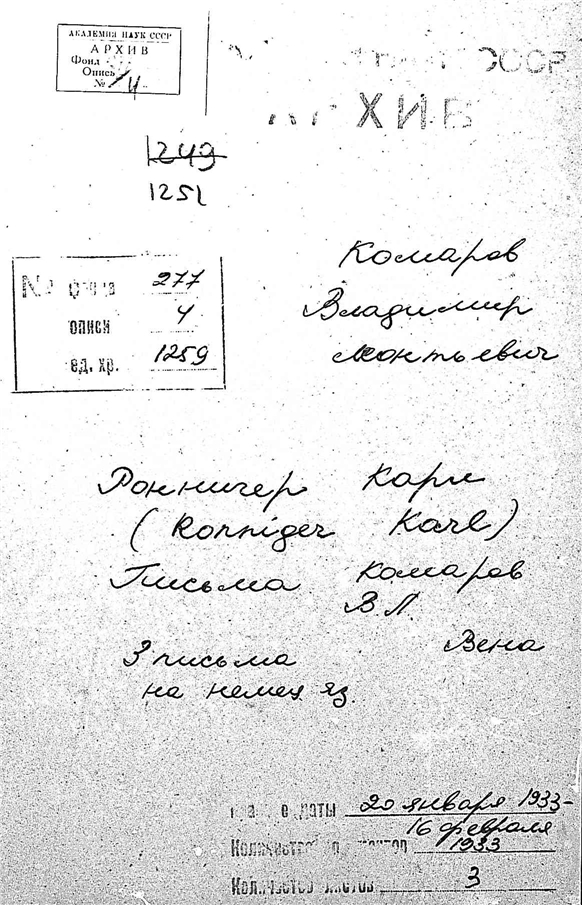 АКАДЕМИЯ НАУК СССР
АРХИВ
Фонд
Опись
№ 14
СССР
АРХИВ
1249
1251
№ фонда 277
описи 4
ед. хр. 1259
Комаров
Владимир
Леонтьевич
Роннигер Карл
(Ronniger Karl)
Письма Комаров
В.Л.
Вена
3 письма
на немец. яз.
даты 20 января 1933-
16 февраля
Количество 1933
Количество листов 3